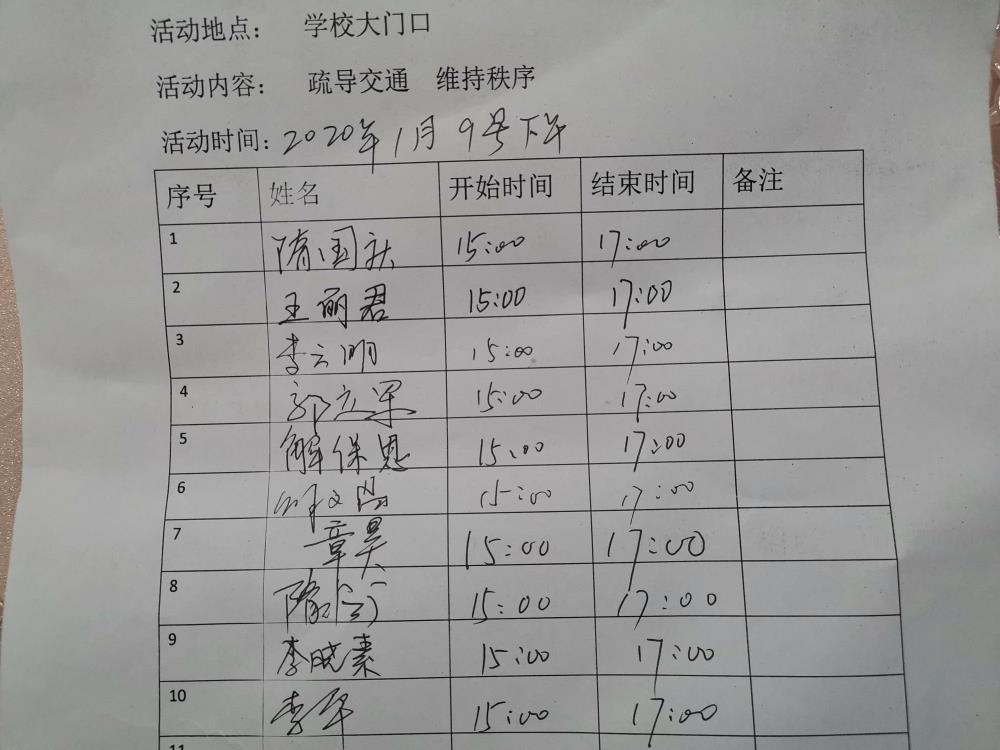 活动地点： 学校大门口
活动内容： 疏导交通 维持秩序
活动时间：2020年1月9号下午
序号 姓名 开始时间 结束时间 备注
1 隋国秋 15:00 17:00
2 王丽君 15:00 17:00
3 李云明 15:00 17:00
4 郭立军 15:00 17:00
5 解保恩 15:00 17:00
6 15:00 17:00
7 章昊 15:00 17:00
8 隋 15:00 17:00
9 李晓素 15:00 17:00
10 李军 15:00 17:00
11